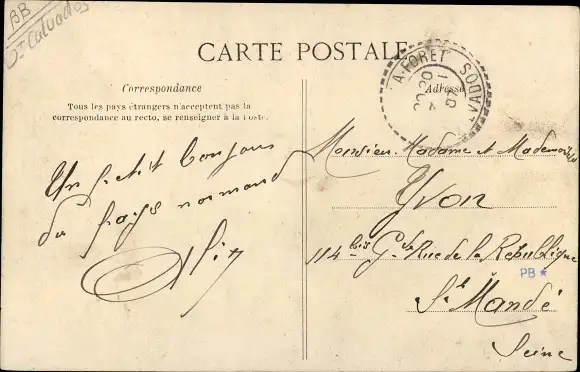 BB
Calvados
CARTE POSTALE
Correspondance
Tous les pays étrangers n'acceptent pas la
correspondance au recto, se renseigner à la Poste.
Un petit bonjour
du pays normand
Adresse
A FORET
Monsieur Madame et Mademoiselle
Yvon
114 bis Gde Rue de la République
PB
St Mandé
Seine